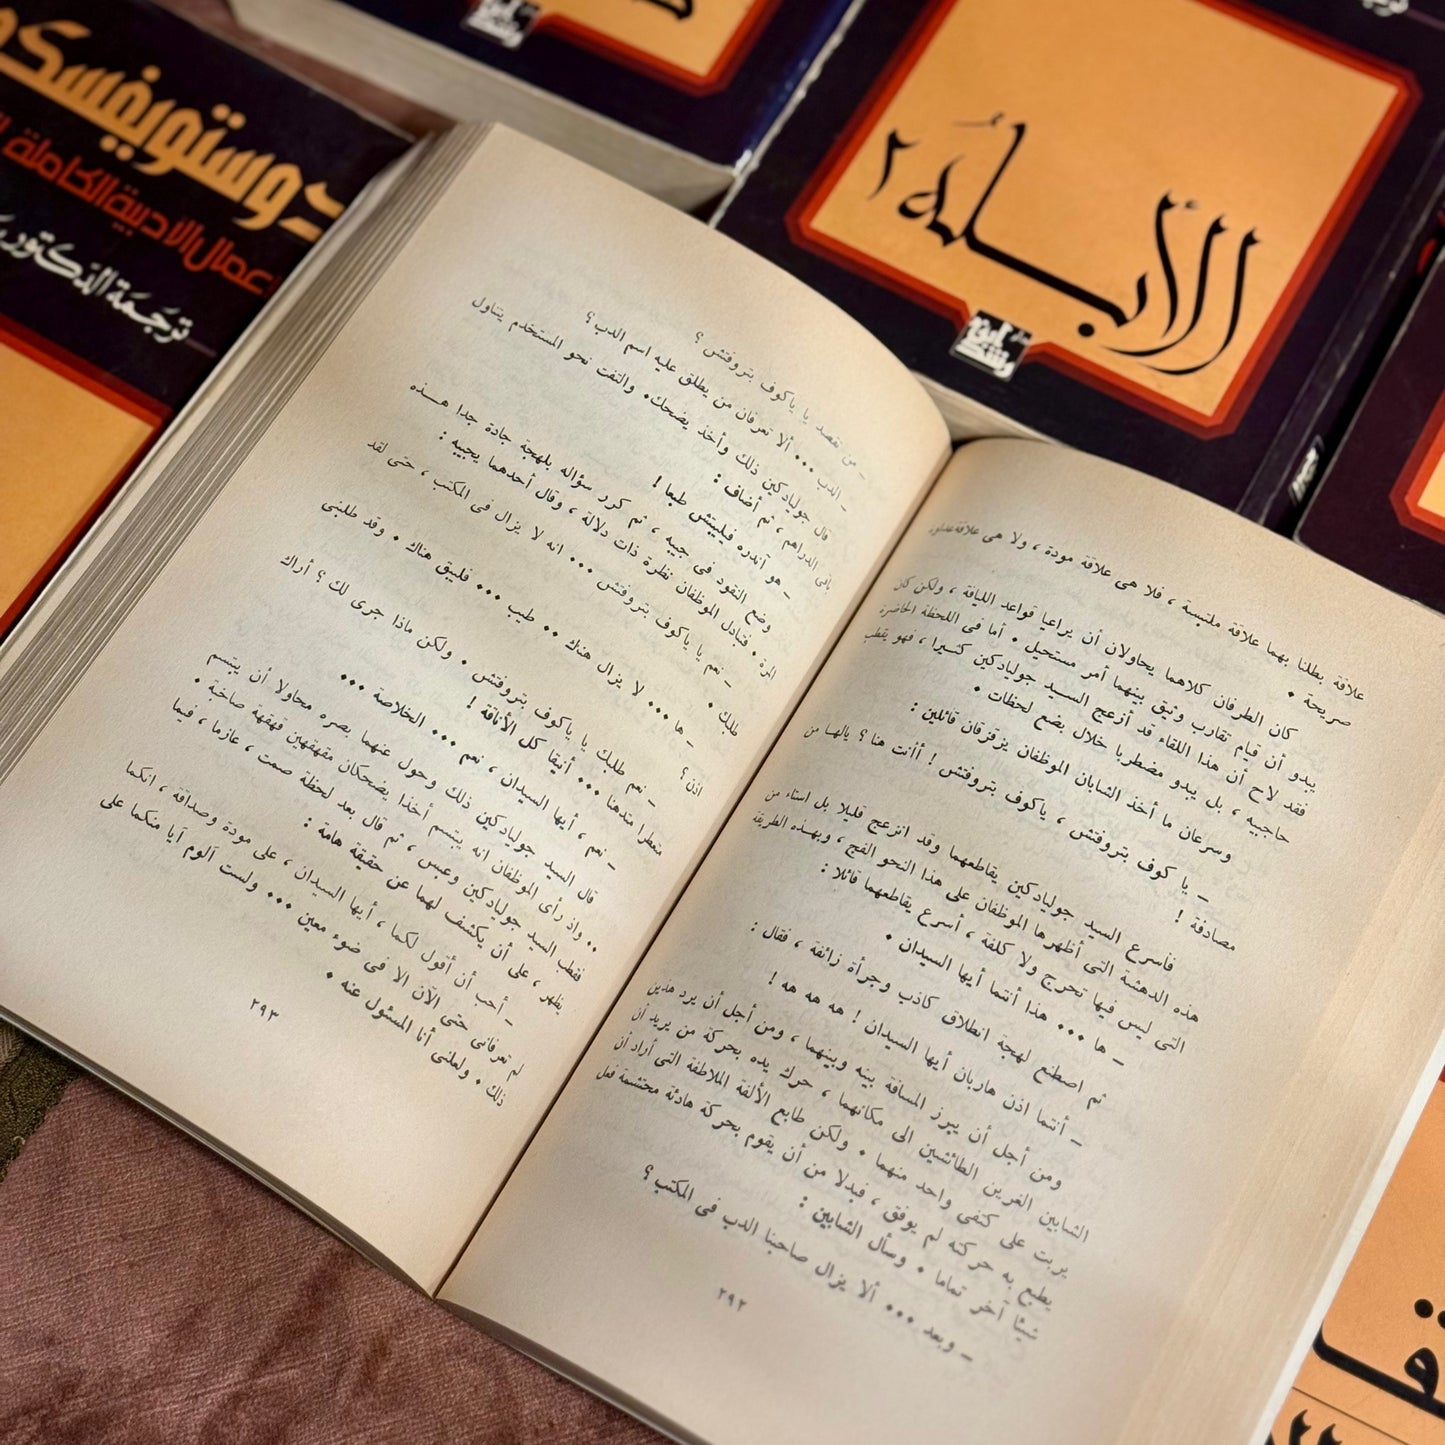 دوستويفسكي
الأعمال الأدبية الكاملة
ترجمة الدكتور
الأبله ٢
علاقة بطلنا بهما علاقة ملتبسة ، فلا هى علاقة مودة ، ولا هى علاقة عداوة
صريحة .
كان الطرفان كلاهما يحاولان أن يراعيا قواعد اللياقة ، ولكن كان
يبدو أن قيام تقارب وثيق بينهما أمر مستحيل . أما فى اللحظة الحاضرة
فقد لاح أن هذا اللقاء قد أزعج السيد جوليادكين كثيرا ، فهو يقطب
حاجبيه ، بل يبدو مضطربا خلال بضع لحظات .
وسرعان ما أخذ الشابان الموظفان يزقزقان قائلين :
ـ يا كوف بتروفتش ، ياكوف بتروفتش ! أأنت هنا ؟ يالها من
مصادفة !
فاسرع السيد جوليادكين يقاطعهما وقد انزعج قليلا بل استاء من
هذه الدهشة التى أظهرها الموظفان على هذا النحو الفج ، وبهذه الطريقة
التى ليس فيها تحرج ولا كلفة ، أسرع يقاطعهما قائلا :
ـ ها ... هذا أنتما أيها السيدان .
ثم اصطنع لهجة انطلاق كاذب وجرأة زائفة ، فقال :
ـ أنتما اذن هاربان أيها السيدان ! هه هه هه !
ومن أجل أن يبرز المسافة بينه وبينهما ، ومن أجل أن يرد هذين
الشابين الغرين الطائشين الى مكانهما ، حرك يده بحركة من يريد أن
يربت على كتفى واحد منهما . ولكن طابع الألفة الملاطفة التى أراد أن
يطبع به حركته لم يوفق ، فبدلا من أن يقوم بحركة هادئة محتشمة فعل
شيئا آخر تماما . وسأل الشابين :
ـ وبعد ... ألا يزال صاحبنا الدب فى المكتب ؟
٢٩٢
ـ من تقصد يا ياكوف بتروفتش ؟
ـ الدب ... ألا تعرفان من يطلق عليه اسم الدب ؟
قال جوليادكين ذلك وأخذ يضحك . والتفت نحو المستخدم يتناول
باقى الدراهم ، ثم أضاف :
ـ هو آندره فيليبتش طبعا !
وضع النقود فى جيبه ، ثم كرر سؤاله بلهجة جادة جدا هذه
المرة . فتبادل الموظفان نظرة ذات دلالة ، وقال أحدهما يجيبه :
ـ نعم يا ياكوف بتروفتش ... انه لا يزال فى المكتب ، حتى لقد
طلبك .
ـ ها ... لا يزال هناك .. طيب ... فليبق هناك . وقد طلبنى
اذن ؟
ـ نعم طلبك يا ياكوف بتروفتش . ولكن ماذا جرى لك ؟ أراك
متعطرا متدهنا ... أنيقا كل الأناقة !
ـ نعم ، أيها السيدان ، نعم ... الخلاصة ...
قال السيد جوليادكين ذلك وحول عنهما بصره محاولا أن يبتسم
.. واذ رأى الموظفان انه يبتسم أخذا يضحكان مقهقهين قهقهة صاخبة .
فقطب السيد جوليادكين وعبس ، ثم قال بعد لحظة صمت ، عازما ، فيما
يظهر ، على أن يكشف لهما عن حقيقة هامة :
ـ أحب أن أقول لكما ، أيها السيدان ، على مودة وصداقه ، انكما
لم تعرفانى حتى الآن الا فى ضوء معين ... ولست ألوم أيا منكما على
ذلك . ولعلنى أنا المسئول عنه .
٢٩٣